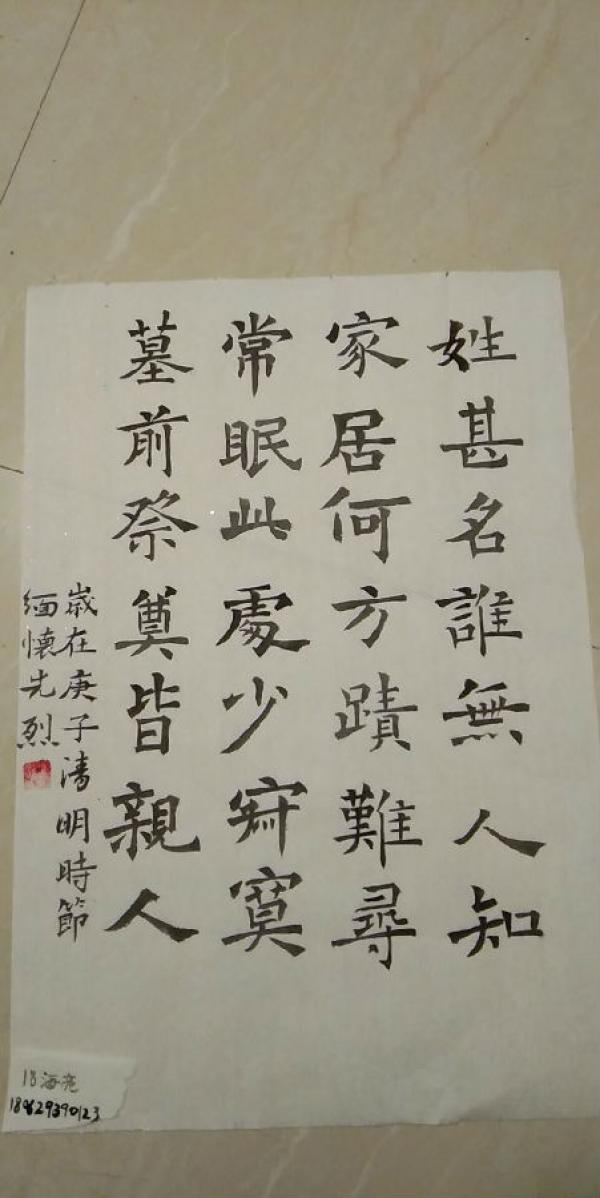 姓甚名誰無人知
家居何方蹟難尋
常眠此處少寂寞
墓前祭奠皆親人
歲在庚子清明時節
緬懷先烈
18海亮
18629390123